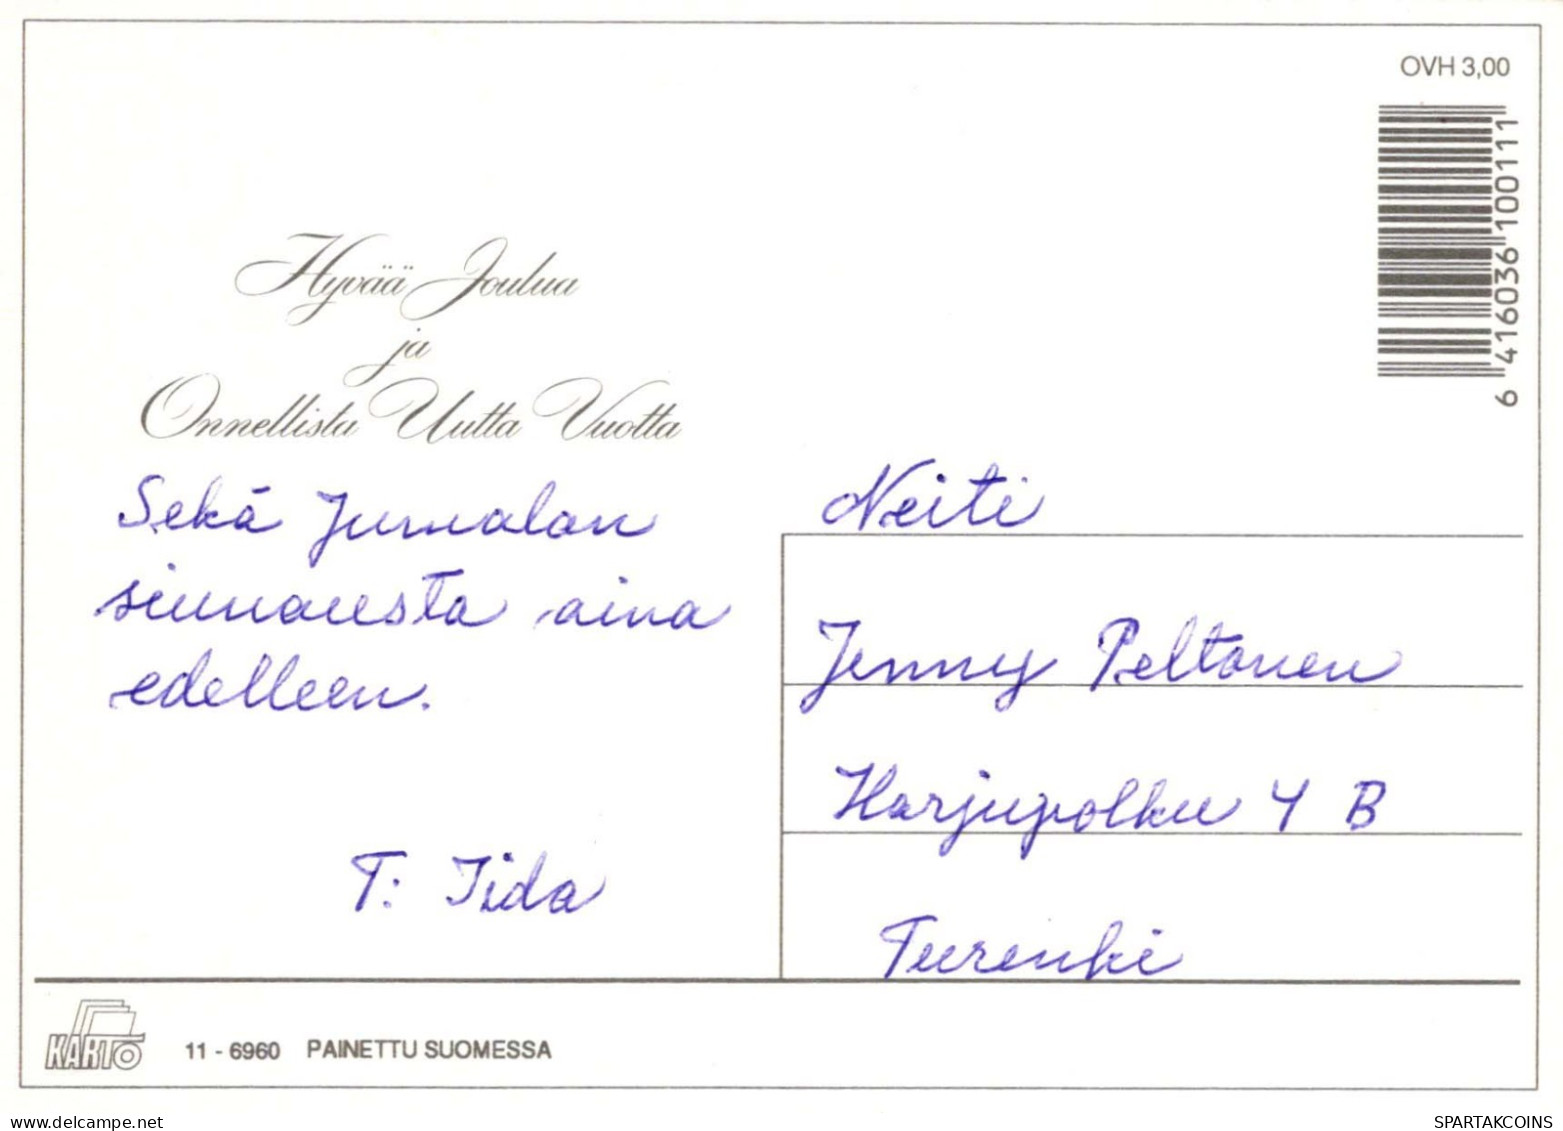 OVH 3,00
6 416036 100111
Hyvää Joulua
ja
Onnellista Uutta Vuotta
Sekä Jumalan
siunausta aina
edelleen.
T: Iida
Neiti
Jenny Peltonen
Harjupolku 4 B
Turenki
KARTO
11 - 6960 PAINETTU SUOMESSA
www.delcampe.net
SPARTAKCOINS